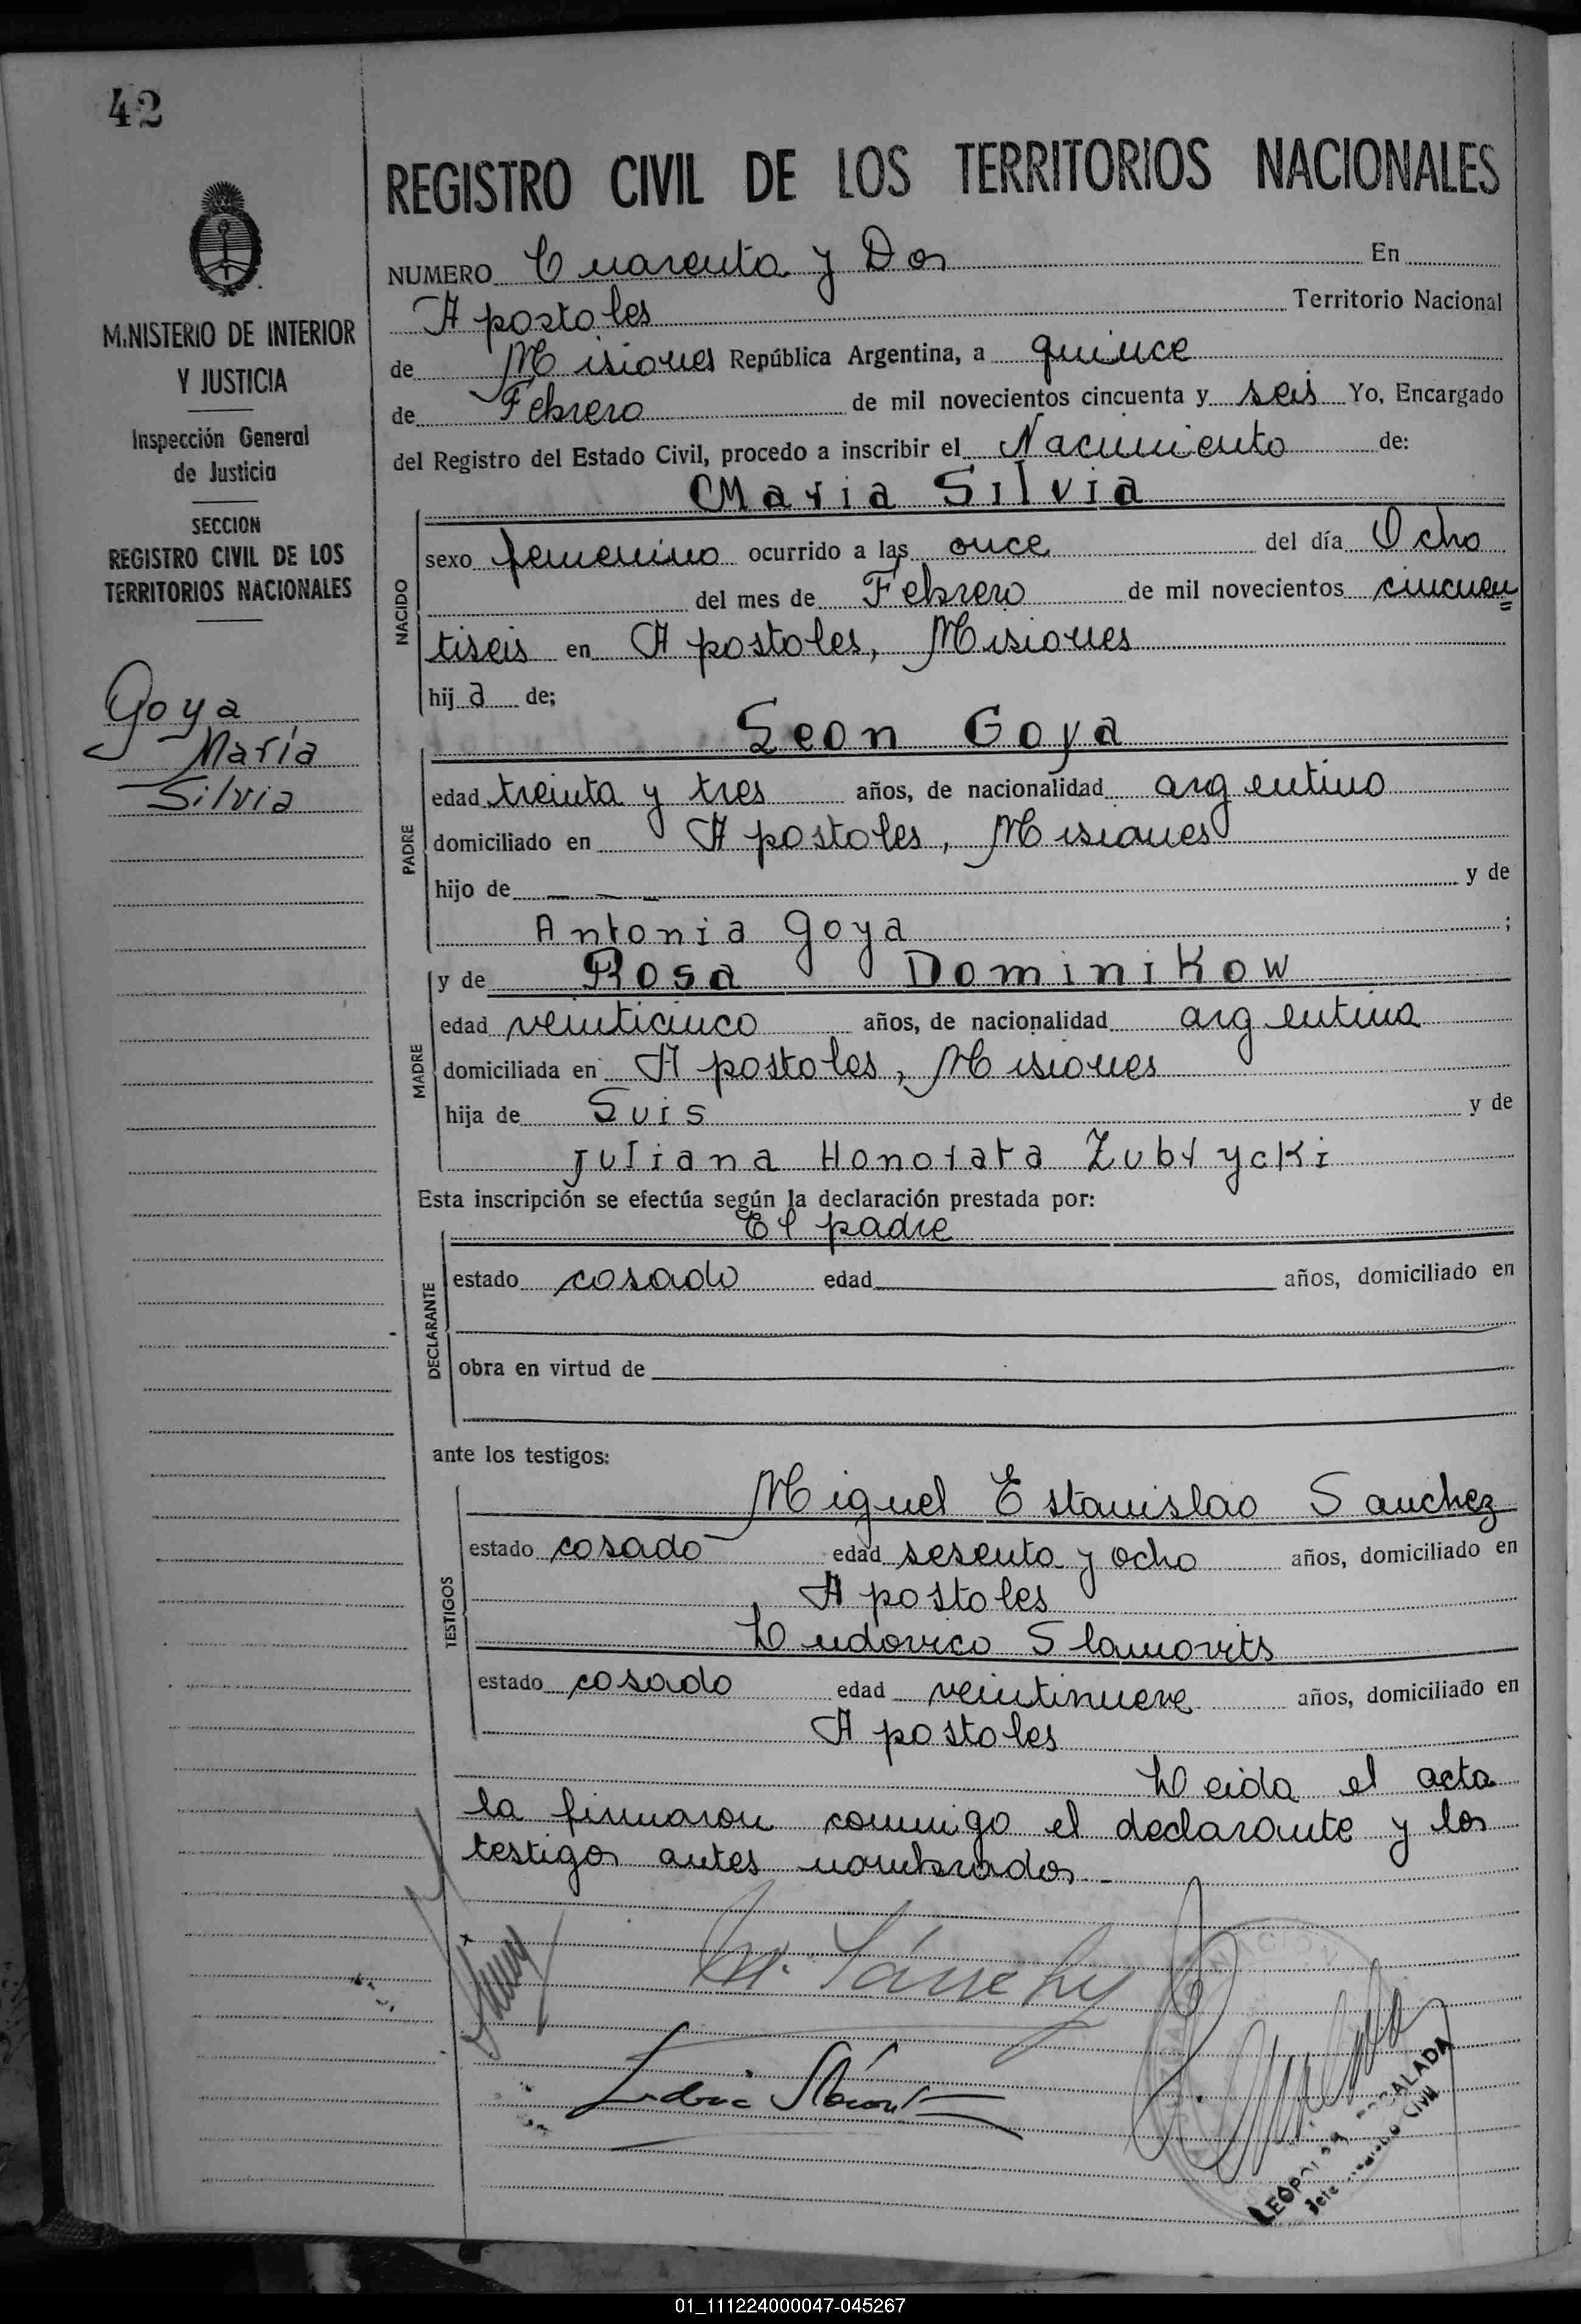 42
REGISTRO CIVIL DE LOS TERRITORIOS NACIONALES
MINISTERIO DE INTERIOR
Y JUSTICIA
Inspección General
de Justicia
SECCION
REGISTRO CIVIL DE LOS
TERRITORIOS NACIONALES
Goya
María
Silvia
NUMERO Cuarenta y Dos En
Apostoles Territorio Nacional
de Misiones República Argentina, a quince
de Febrero de mil novecientos cincuenta y seis Yo, Encargado
del Registro del Estado Civil, procedo a inscribir el Nacimiento de:
NACIDO
Maria Silvia
sexo femenino ocurrido a las once del día Ocho
del mes de Febrero de mil novecientos cincuen
tiseis en Apostoles, Misiones
hija de;
PADRE
Leon Goya
edad treinta y tres años, de nacionalidad argentino
domiciliado en Apostoles, Misiones
hijo de — — — y de
Antonia Goya ;
MADRE
y de Rosa Dominikow
edad veinticinco años, de nacionalidad argentina
domiciliada en Apostoles, Misiones
hija de Luis y de
Juliana Honorata Zubrycki
Esta inscripción se efectúa según la declaración prestada por:
DECLARANTE
El padre
estado casado edad años, domiciliado en
obra en virtud de
ante los testigos:
TESTIGOS
Miguel Estanislao Sanchez
estado casado edad sesenta y ocho años, domiciliado en
Apostoles
Ludovico Slamovits
estado casado edad veintinueve años, domiciliado en
Apostoles
Leida el acta
la firmaron conmigo el declarante y los
testigos antes nombrados.-
M. Sánchez
CALADA
Civil
01_111224000047-045267